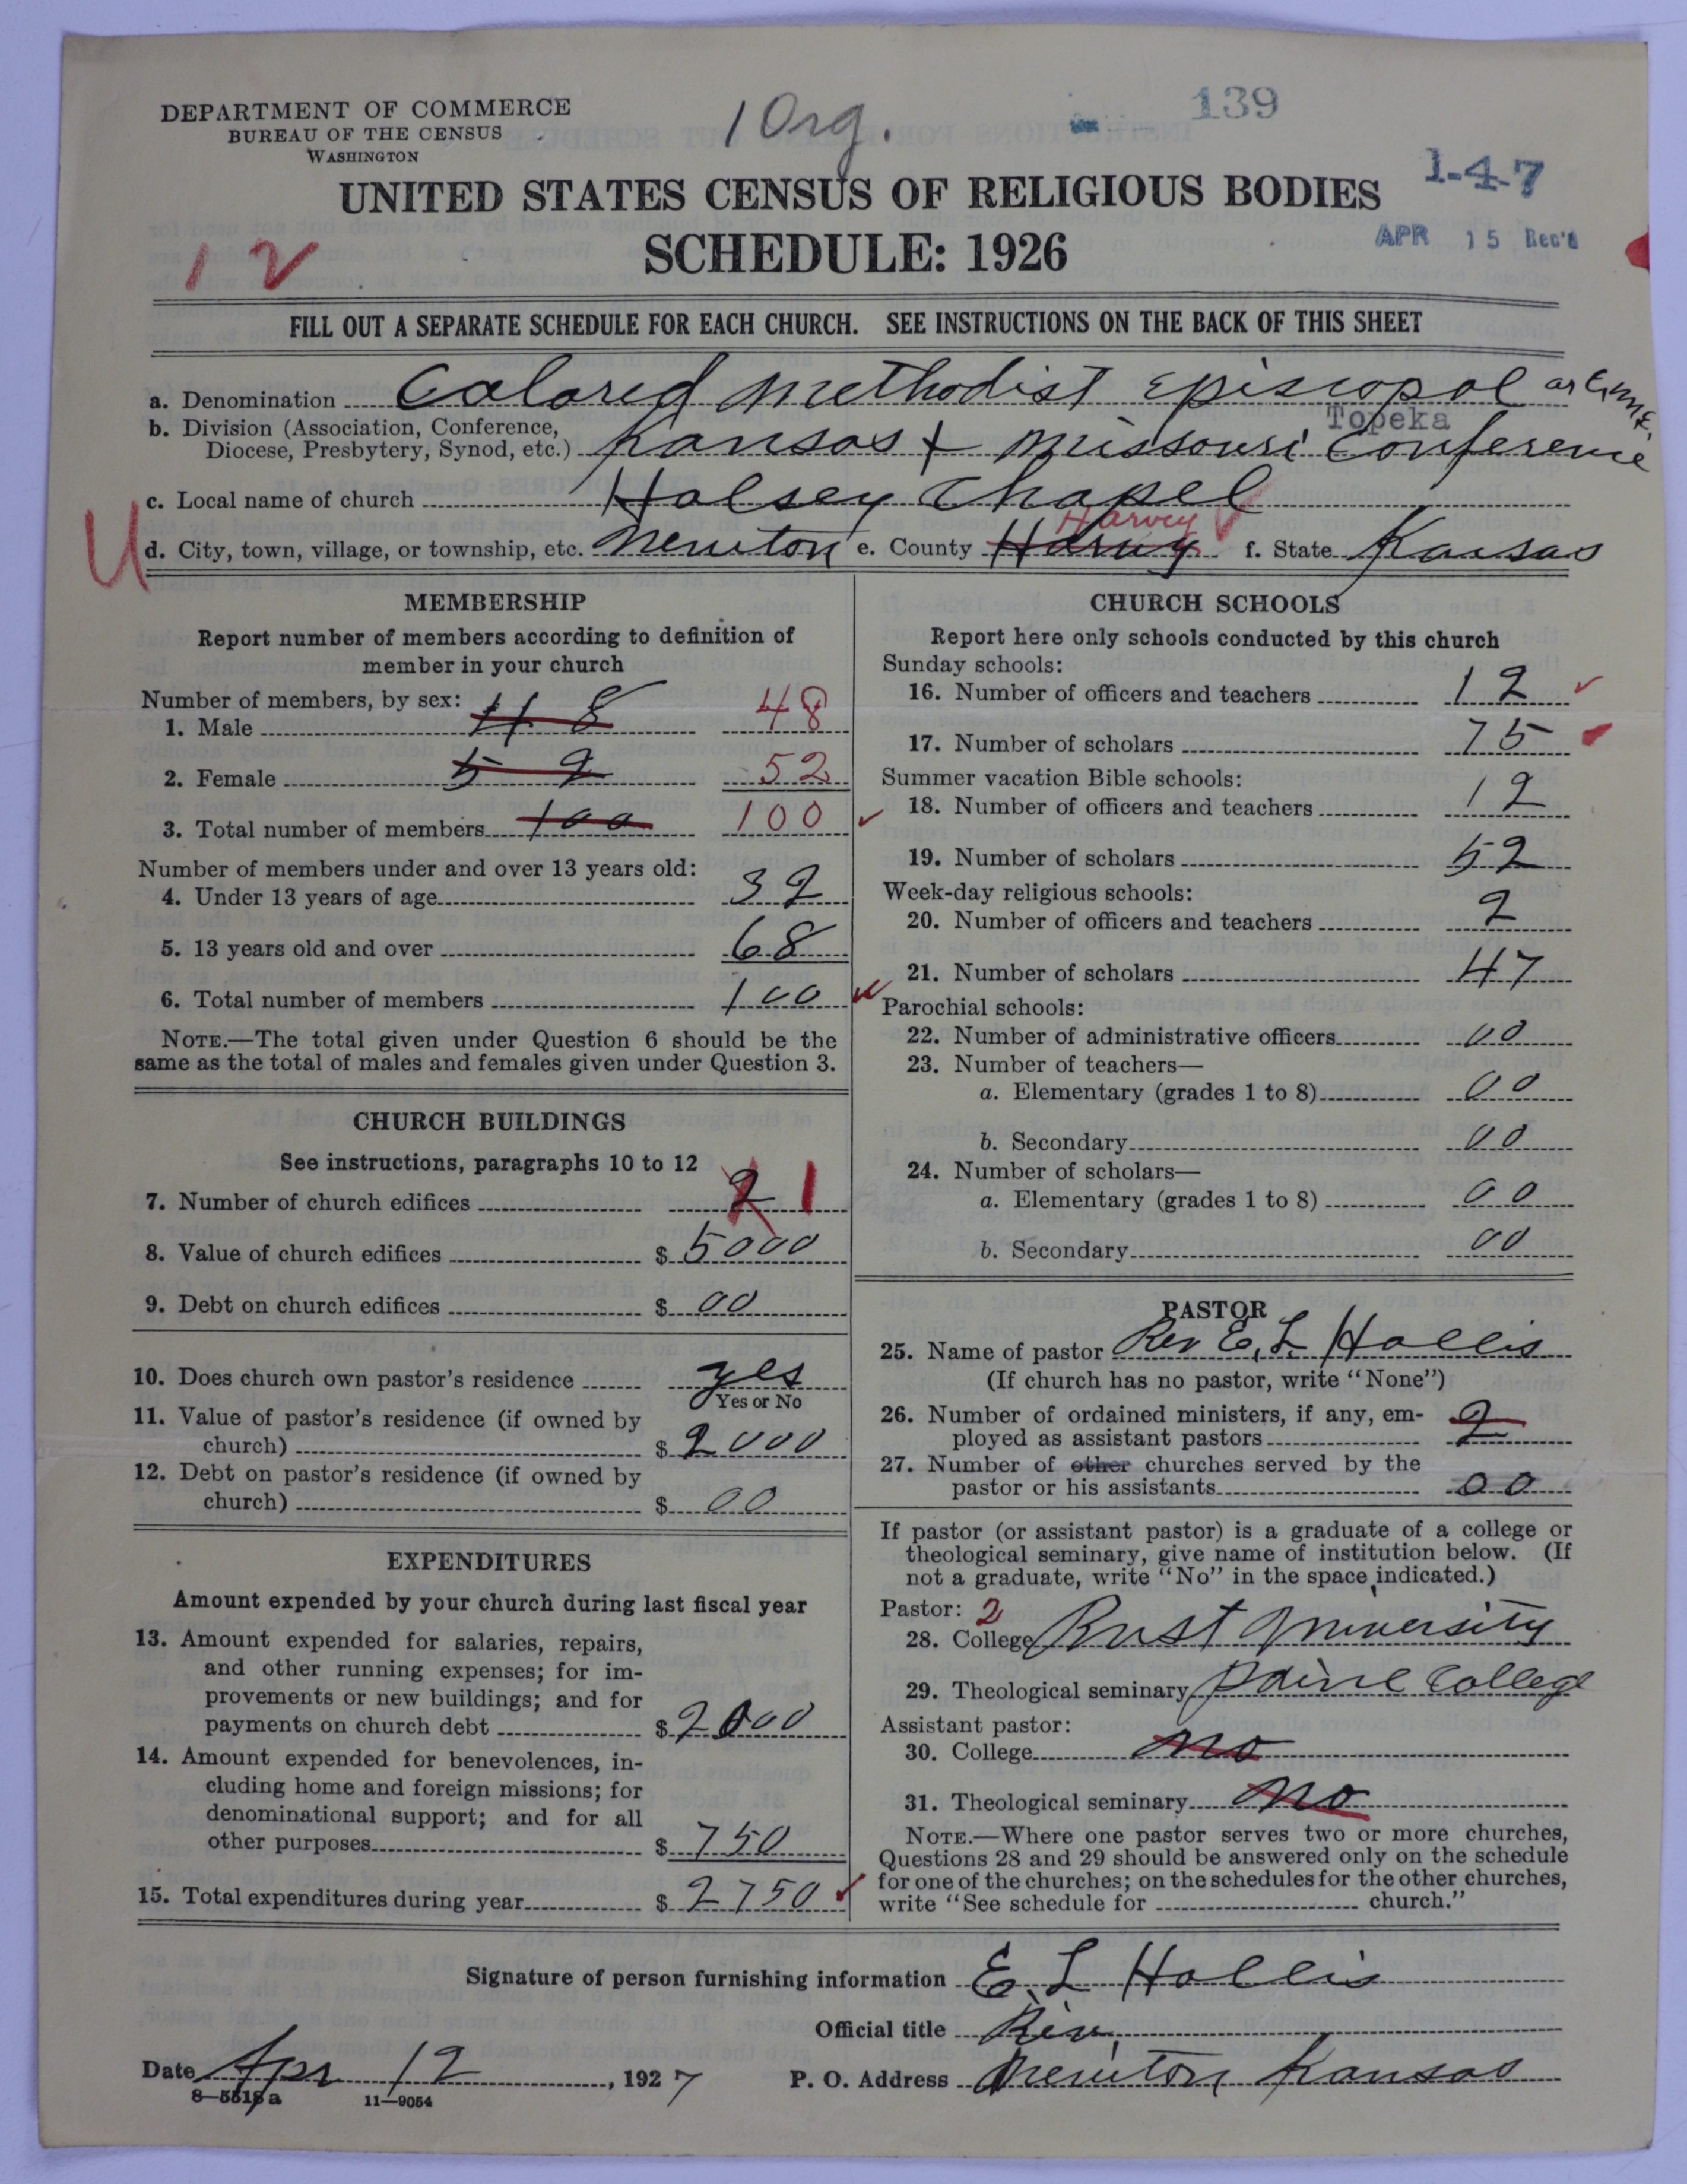 DEPARTMENT OF COMMERCE
BUREAU OF THE CENSUS
WASHINGTON
1 Org.
139
1-4-7
UNITED STATES CENSUS OF RELIGIOUS BODIES
SCHEDULE: 1926
APR 15 Rec'd
12
FILL OUT A SEPARATE SCHEDULE FOR EACH CHURCH. SEE INSTRUCTIONS ON THE BACK OF THIS SHEET
a. Denomination Colored Methodist Episcopol or C.M.E.
Topeka
b. Division (Association, Conference,
Diocese, Presbytery, Synod, etc.) Kansas + Missouri Conference
c. Local name of church Halsey Chapel
Harvey
U d. City, town, village, or township, etc. Newton e. County Harvy f. State Kansas
MEMBERSHIP
Report number of members according to definition of
member in your church
Number of members, by sex:
1. Male 48 48
2. Female 52 52
3. Total number of members 100 100
Number of members under and over 13 years old:
4. Under 13 years of age 32
5. 13 years old and over 68
6. Total number of members 100
NOTE.—The total given under Question 6 should be the
same as the total of males and females given under Question 3.
CHURCH BUILDINGS
See instructions, paragraphs 10 to 12
7. Number of church edifices 2 1
8. Value of church edifices $ 5000
9. Debt on church edifices $ 00
10. Does church own pastor's residence yes
Yes or No
11. Value of pastor's residence (if owned by
church) $ 2000
12. Debt on pastor's residence (if owned by
church) $ 00
EXPENDITURES
Amount expended by your church during last fiscal year
13. Amount expended for salaries, repairs,
and other running expenses; for im-
provements or new buildings; and for
payments on church debt $ 2000
14. Amount expended for benevolences, in-
cluding home and foreign missions; for
denominational support; and for all
other purposes $ 750
15. Total expenditures during year $ 2750
CHURCH SCHOOLS
Report here only schools conducted by this church
Sunday schools:
16. Number of officers and teachers 12
17. Number of scholars 75
Summer vacation Bible schools:
18. Number of officers and teachers 12
19. Number of scholars 52
Week-day religious schools:
20. Number of officers and teachers 2
21. Number of scholars 47
Parochial schools:
22. Number of administrative officers 00
23. Number of teachers—
a. Elementary (grades 1 to 8) 00
b. Secondary 00
24. Number of scholars—
a. Elementary (grades 1 to 8) 00
b. Secondary 00
PASTOR
25. Name of pastor Rev E. L. Hollis
(If church has no pastor, write "None")
26. Number of ordained ministers, if any, em-
ployed as assistant pastors 2
27. Number of other churches served by the
pastor or his assistants 00
If pastor (or assistant pastor) is a graduate of a college or
theological seminary, give name of institution below. (If
not a graduate, write "No" in the space indicated.)
Pastor: 2
28. College Rust University
29. Theological seminary Paine College
Assistant pastor:
30. College no
31. Theological seminary no
NOTE.—Where one pastor serves two or more churches,
Questions 28 and 29 should be answered only on the schedule
for one of the churches; on the schedules for the other churches,
write "See schedule for church."
Signature of person furnishing information E. L Hollis
Official title Rev.
Date Apr 12, 1927 P. O. Address Newton Kansas
8—5518a 11—9054